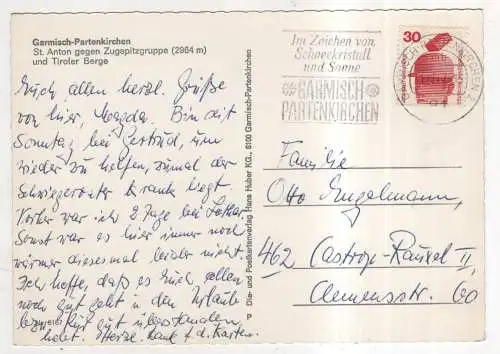 Garmisch-Partenkirchen
St. Anton gegen Zugspitzgruppe (2964 m)
und Tiroler Berge
Euch allen herzl. Grüße
von hier, Magda. Bin seit
Sonntag bei Gertrud, um
wieder zu helfen, zumal der
Schwiegervater krank liegt.
Vorher war ich 2 Tage bei Lothar.
Sonst war es hier immer noch
wärmer diesesmal leider nicht.
Ich hoffe, daß es Euch allen
noch gut geht u. den Urlaub
bezw. Kur gut überstanden
habt. Herzl. Dank f. d. Karten.
P Dia- und Postkartenverlag Hans Huber KG., 8100 Garmisch-Partenkirchen
Im Zeichen von
Schneekristall
und Sonne
GARMISCH
PARTENKIRCHEN
30
Familie
Otto Engelmann,
462 Castrop-Rauxel II,
Clemensstr. 60